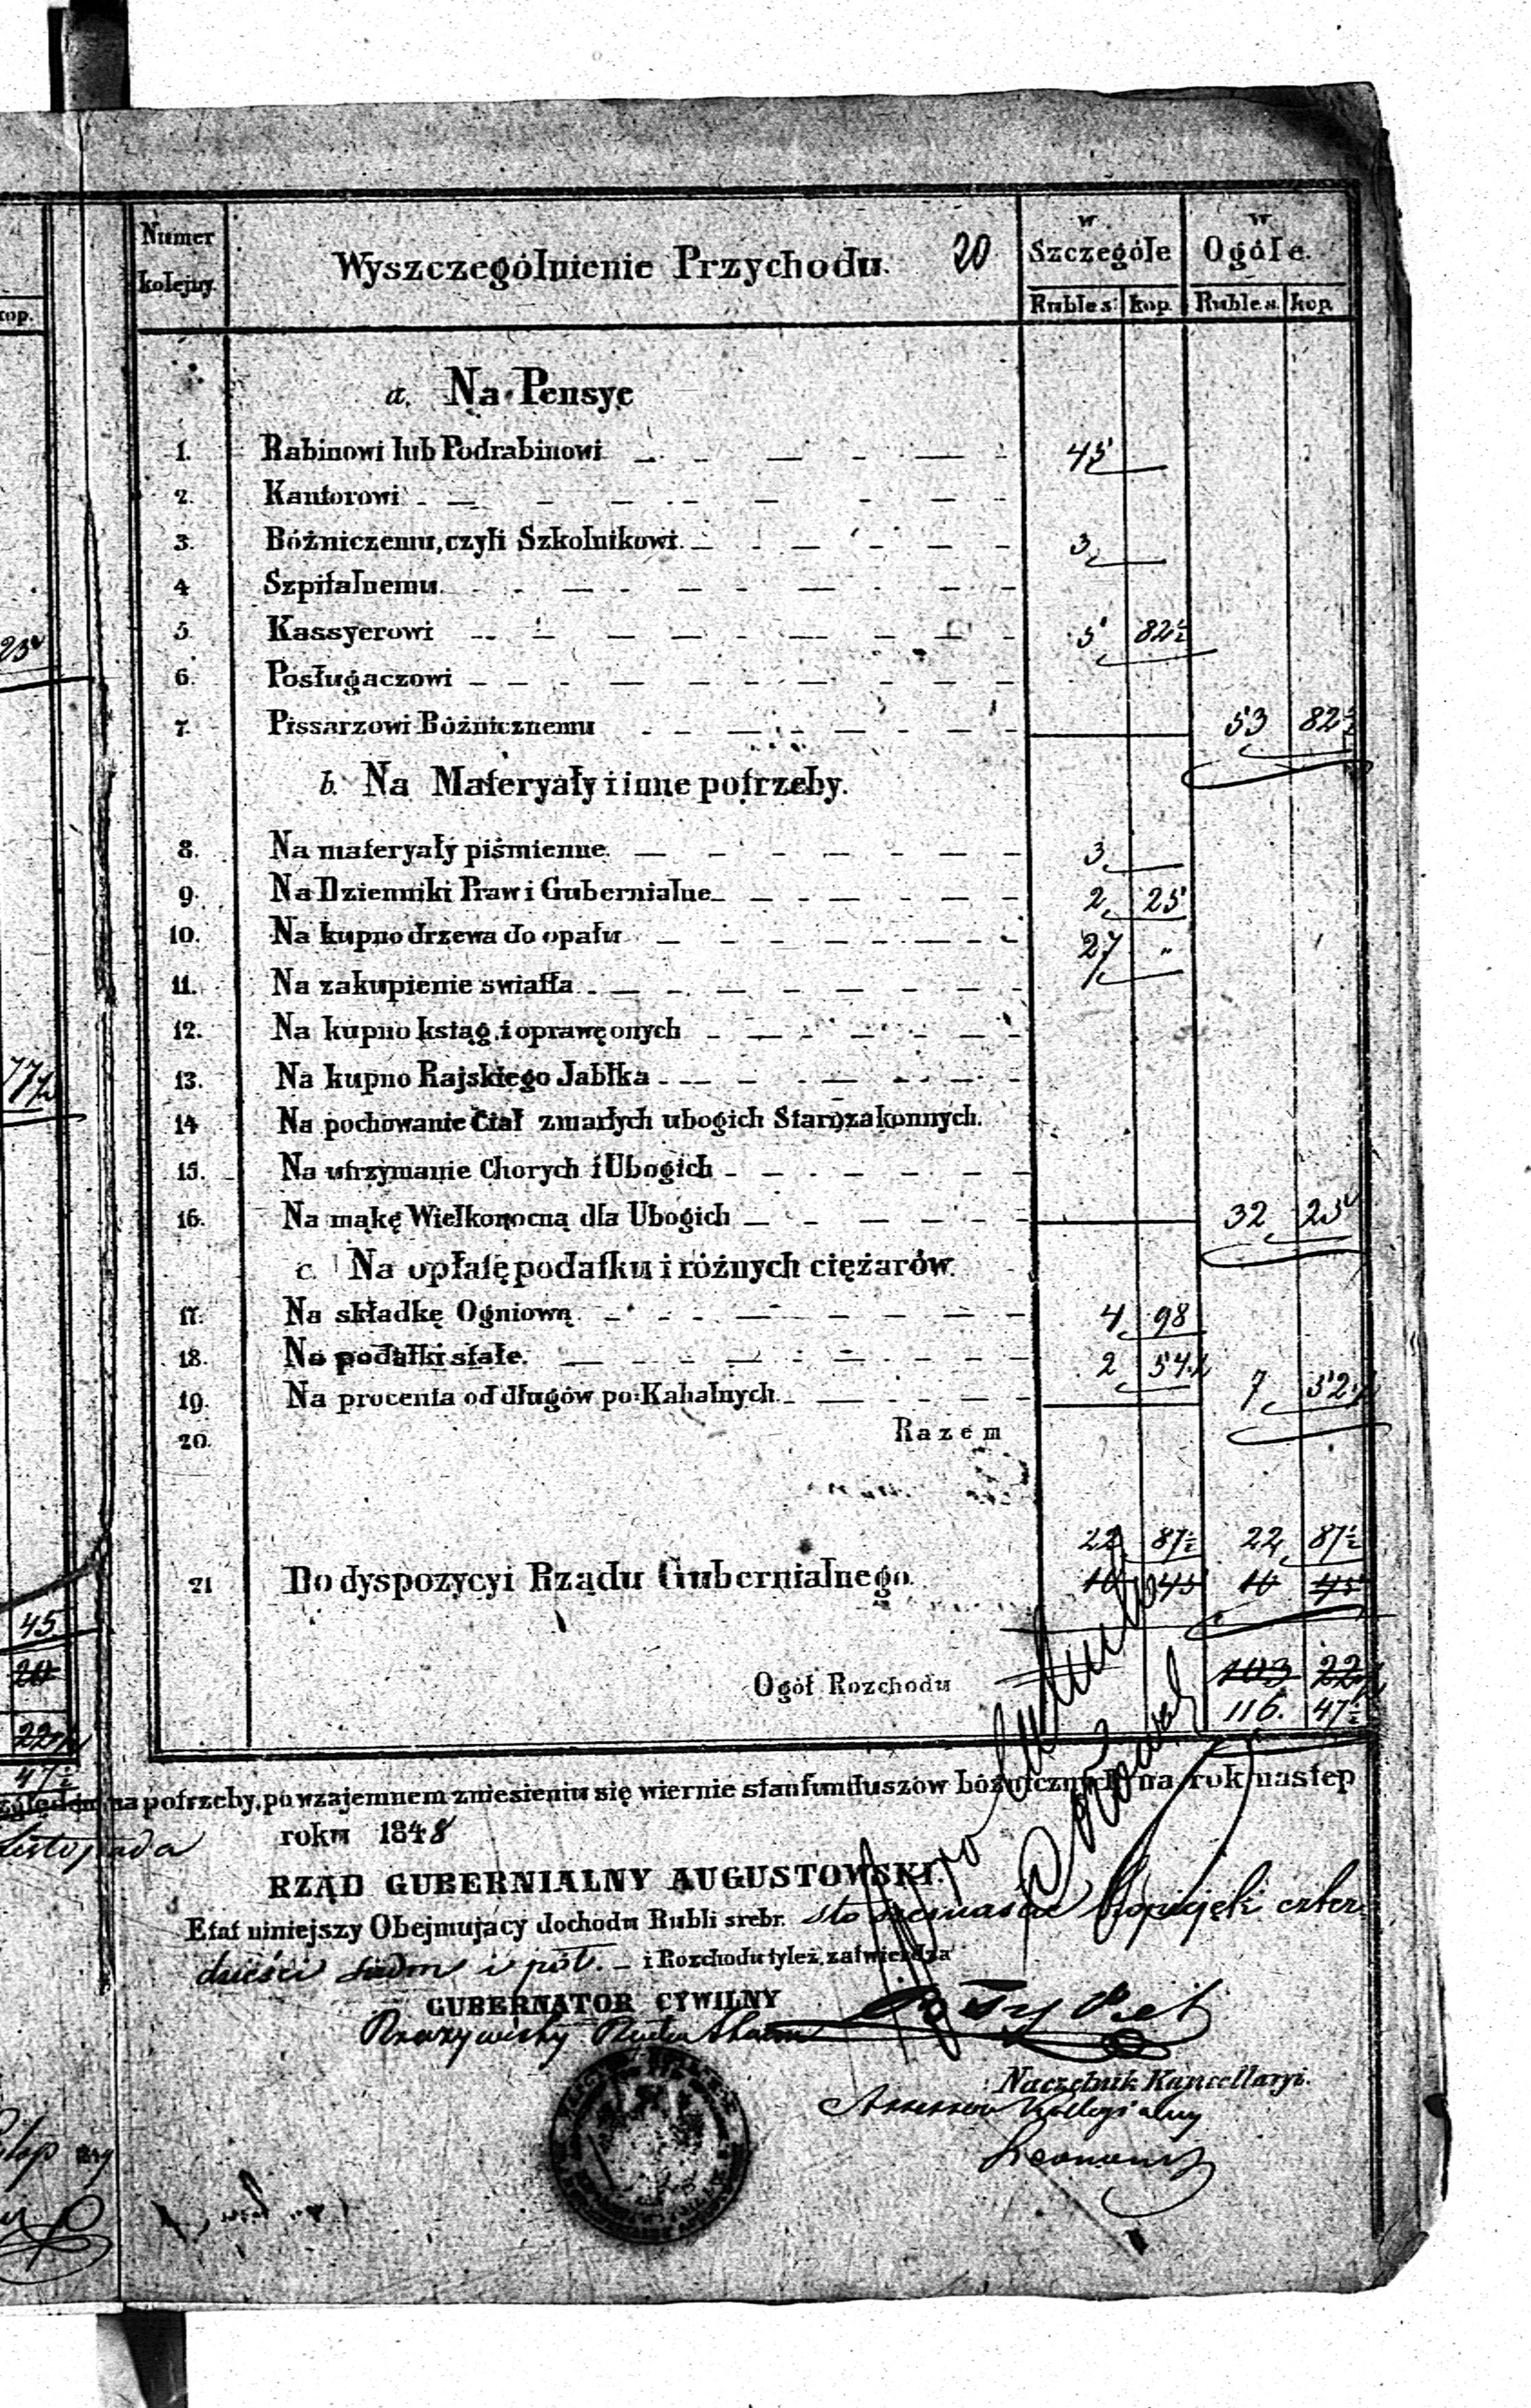 Numer kolejny. Wyszczególnienie Przychodu. 20 w Szczególe w Ogóle.
Rubles: kop. Rubles. kop.
a. Na Pensye
1. Rabinowi lub Podrabinowi 45
2. Kantorowi
3. Bóżniczemu, czyli Szkolnikowi 3
4 Szpitalnemu
5. Kassyerowi 5 82½
6. Posługaczowi
7. Pissarzowi Bóżnicznemu 53 82½
b. Na Materyały i inne potrzeby.
8. Na materyały piśmienne 3
9. Na Dzienniki Praw i Gubernialne 2 25
10. Na kupno drzewa do opału 27 "
11. Na zakupienie swiatła
12. Na kupno ksiąg i oprawę onych
13. Na kupno Rajskiego Jabłka
14 Na pochowanie Ciał zmarłych ubogich Starozakonnych.
15. Na utrzymanie Chorych i Ubogich
16. Na mąkę Wielkonocną dla Ubogich 32 25
c. Na opłatę podatku i różnych ciężarów.
17. Na składkę Ogniową 4 98
18. Na podatki stałe. 2 54½
19. Na procenta od długów po-Kahalnych 7 52½
20. Razem
22 87½ 22 87½
21 Do dyspozycyi Rządu Gubernialnego. 10 45 10 45
Ogół Rozchodu 103 22½
116. 47½
45
20
22½
47½
na potrzeby, po wzajemnem zniesieniu się wiernie stan funduszów bóżnicznych na rok następ
Listopada roku 1848
RZĄD GUBERNIALNY AUGUSTOWSKI.
Etat niniejszy Obejmujący dochodu Rubli srebr. sto szesnaście Kopiejek czter
dzieści siedm i pół. i Rozchodu tyleż, zatwierdza
GUBERNATOR CYWILNY
Rzeczywisty Radca Stanu
Naczelnik Kancellaryi.
Assessor Kollegialny